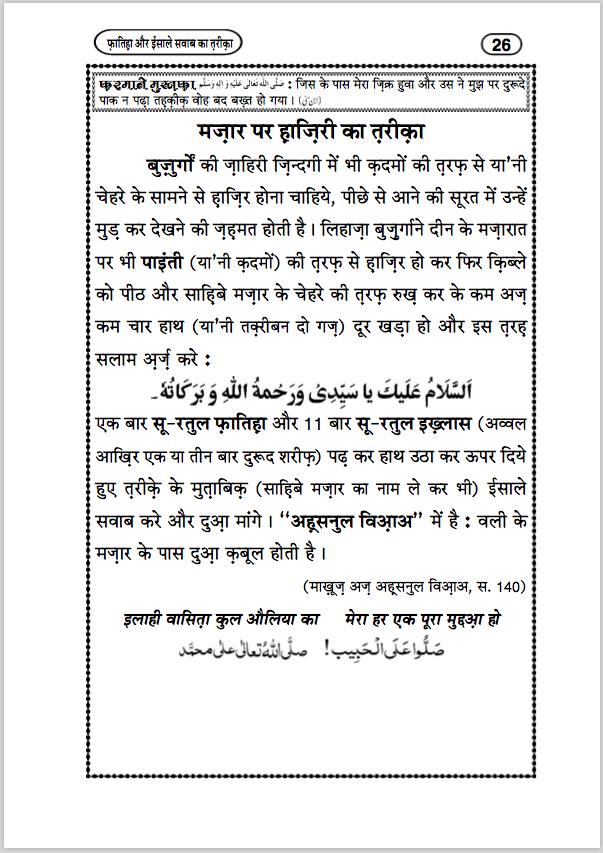 फ़ातिह़ा और ईसाले सवाब का त़रीक़ा
26
फ़रमाने मुस्त़फ़ा صَلَّى اللهُ تَعَالٰى عَلَيْهِ وَاٰلِهٖ وَسَلَّم : जिस के पास मेरा ज़िक्र हुवा और उस ने मुझ पर दुरूदे
पाक न पढ़ा तह़क़ीक़ वोह बद बख़्त हो गया ।
मज़ार पर ह़ाज़िरी का त़रीक़ा
बुज़ुर्गों की ज़ाहिरी ज़िन्दगी में भी क़दमों की त़रफ़ से या'नी
चेहरे के सामने से ह़ाज़िर होना चाहिये, पीछे से आने की सूरत में उन्हें
मुड़ कर देखने की ज़ह़मत होती है । लिहाज़ा बुज़ुर्गाने दीन के मज़ारात
पर भी पाइंती (या'नी क़दमों) की त़रफ़ से ह़ाज़िर हो कर फिर क़िब्ले
को पीठ और साहि़बे मज़ार के चेहरे की त़रफ़ रुख़ कर के कम अज़
कम चार हाथ (या'नी तक़्रीबन दो गज़) दूर खड़ा हो और इस त़रह़
सलाम अ़र्ज़ करे :
اَلسَّلَامُ عَلَيْكَ يَا سَيِّدِىْ وَرَحْمَةُ اللهِ وَ بَرَكَاتُهٗ۔
एक बार सू-रतुल फ़ातिह़ा और 11 बार सू-रतुल इख़्लास (अव्वल
आख़िर एक या तीन बार दुरूद शरीफ़) पढ़ कर हाथ उठा कर ऊपर दिये
हुए त़रीक़े के मुत़ाबिक़ (साहि़बे मज़ार का नाम ले कर भी) ईसाले
सवाब करे और दुआ़ मांगे । “अह़्सनुल विआ़अ” में है : वली के
मज़ार के पास दुआ़ क़बूल होती है ।
(माख़ूज़ अज़ अह़्सनुल विआ़अ, स. 140)
इलाही वासित़ा कुल औलिया का मेरा हर एक पूरा मुद्दआ़ हो
صَلُّوْا عَلَى الْحَبِيْب! صَلَّى اللهُ تَعَالٰى عَلٰى مُحَمَّد